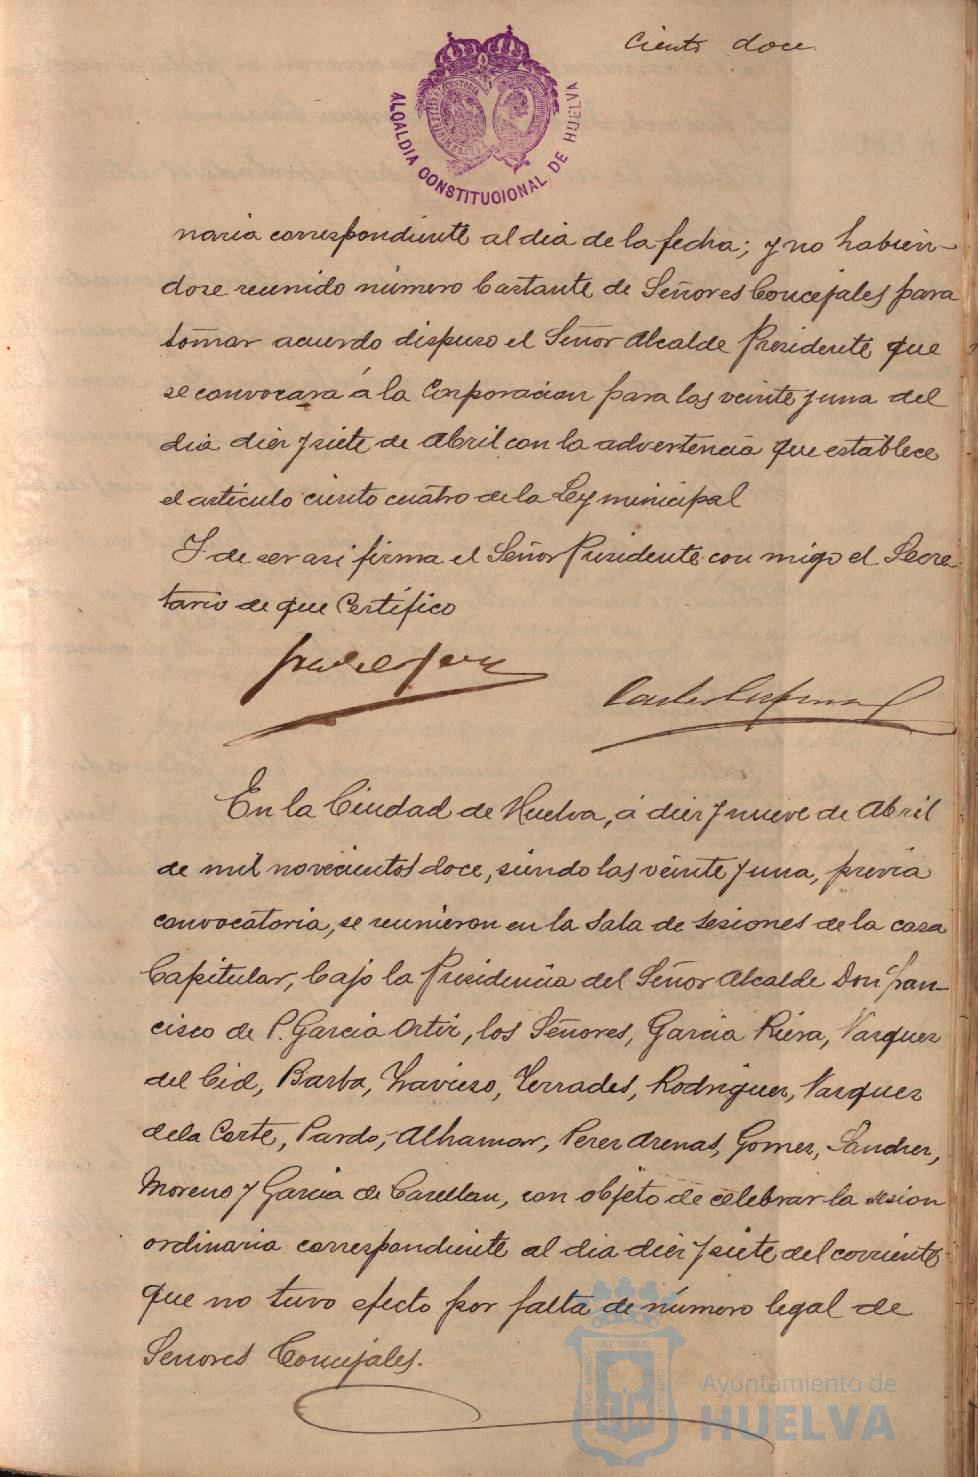 Ciento doce
ALCALDIA CONSTITUCIONAL DE HUELVA
naria correspondiente al dia de la fecha; y no habien-
dose reunido número bastante de Señores Concejales para
tomar acuerdo dispuso el Señor Alcalde Presidente que
se convocara á la Corporacion para las veinte y una del
dia diez y siete de Abril con la advertencia que establece
el articulo ciento cuatro de la Ley municipal
Y de ser asi firma el Señor Presidente con migo el Secre-
tario de que Certifico
En la Ciudad de Huelva, á diez y nueve de Abril
de mil novecientos doce, siendo las veinte y una, previa
convocatoria, se reunieron en la Sala de Sesiones de la casa
Capitular, bajo la Presidencia del Señor Alcalde Don Fran-
cisco de P. Garcia Ortiz, los Señores, Garcia Riera, Vazquez
del Cid, Barba, Travieso, Terrades, Rodriguez, Vazquez
de la Corte, Pardo, Alhamar, Perez Arenas, Gomez, Sanchez,
Moreno y Garcia de Casellan, con objeto de celebrar la sesion
ordinaria correspondiente al dia diez y siete del corriente
que no tuvo efecto por falta de número legal de
Señores Concejales.
Ayuntamiento de
HUELVA